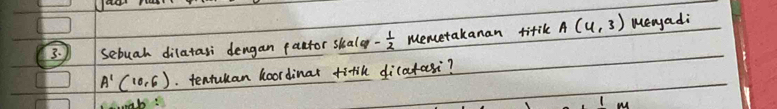 3. Sebuah dilatasi dengan faktor skala - 1/2 memetakanan titik A (4, 3) menjadi
A' (10, 6). tentukan koordinat titik dilatasi?